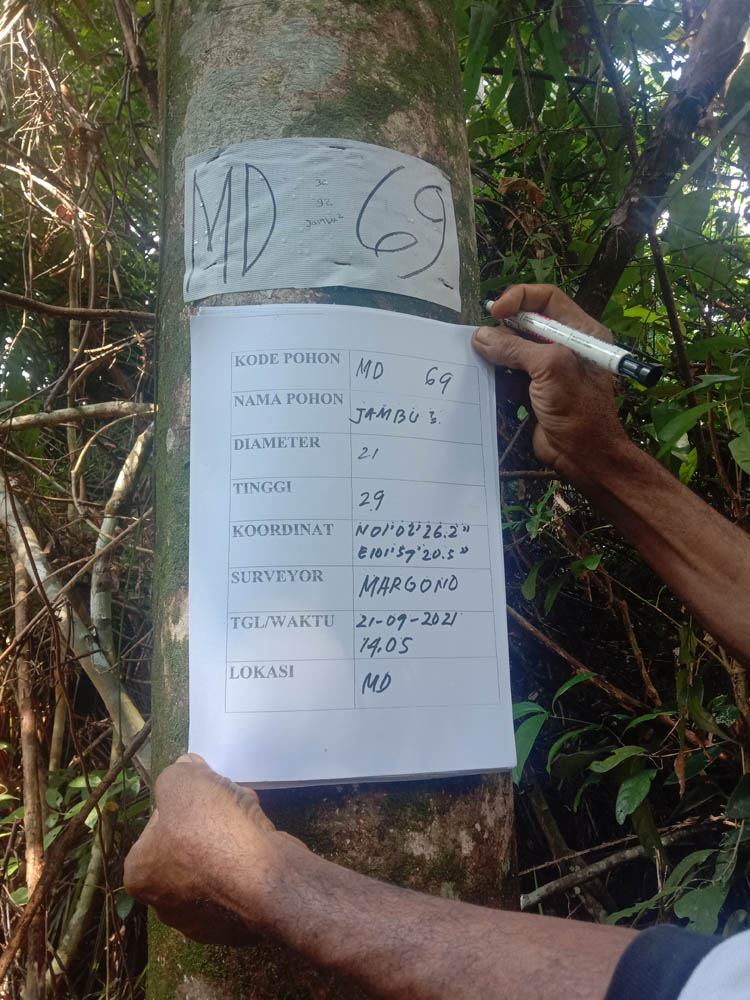 MD 69
30
92
Jambu²
KODE POHON MD 69
NAMA POHON JAMBU 2
DIAMETER 21
TINGGI 29
KOORDINAT N 01°02'26.2"
E101°57'20.5"
SURVEYOR MARGONO
TGL/WAKTU 21-09-2021
14.05
LOKASI MD